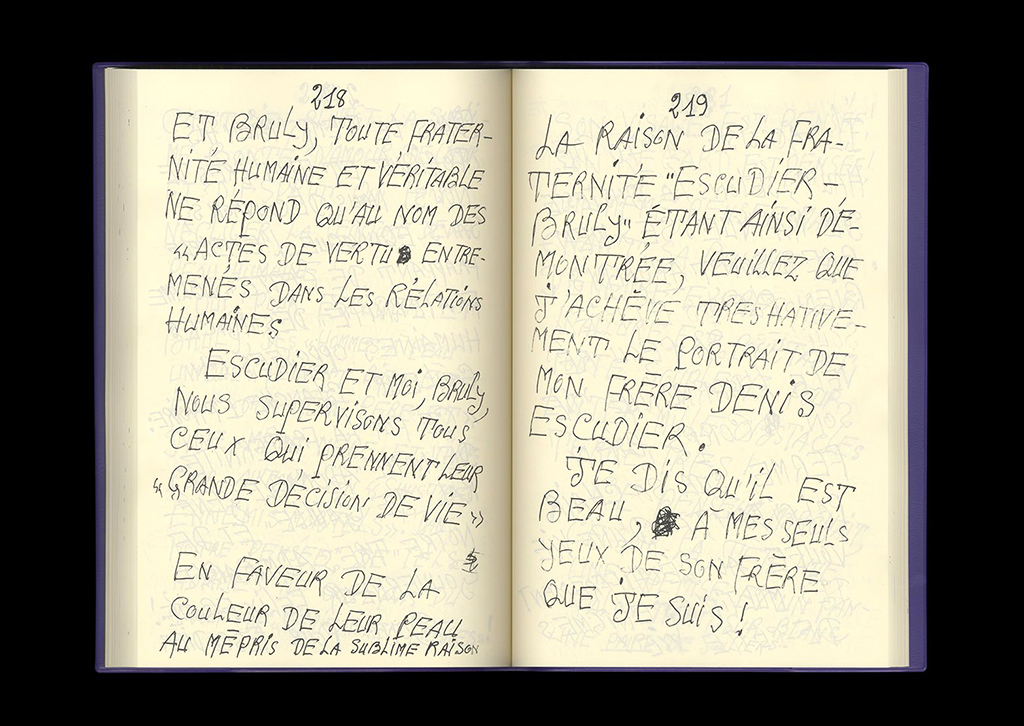 218
ET BRULY, TOUTE FRATER-
NITÉ HUMAINE ET VÉRITABLE
NE RÉPOND QU'AU NOM DES
"ACTES DE VERTU ENTRE-
MENÉS DANS LES RÉLATIONS
HUMAINES
ESCUDIER ET MOI, BRULY,
NOUS SUPERVISONS TOUS
CEUX QUI PRENNENT LEUR
"GRANDE DÉCISION DE VIE"
EN FAVEUR DE LA
COULEUR DE LEUR PEAU
AU MÉPRIS DE LA SUBLIME RAISON
219
LA RAISON DE LA FRA-
TERNITÉ "ESCUDIER-
BRULY" ÉTANT AINSI DÉ-
MONTRÉE, VEUILLEZ QUE
J'ACHÈVE TRES HATIVE-
MENT LE PORTRAIT DE
MON FRÈRE DENIS
ESCUDIER.
JE DIS QU'IL EST
BEAU, À MES SEULS
YEUX DE SON FRÈRE
QUE JE SUIS !